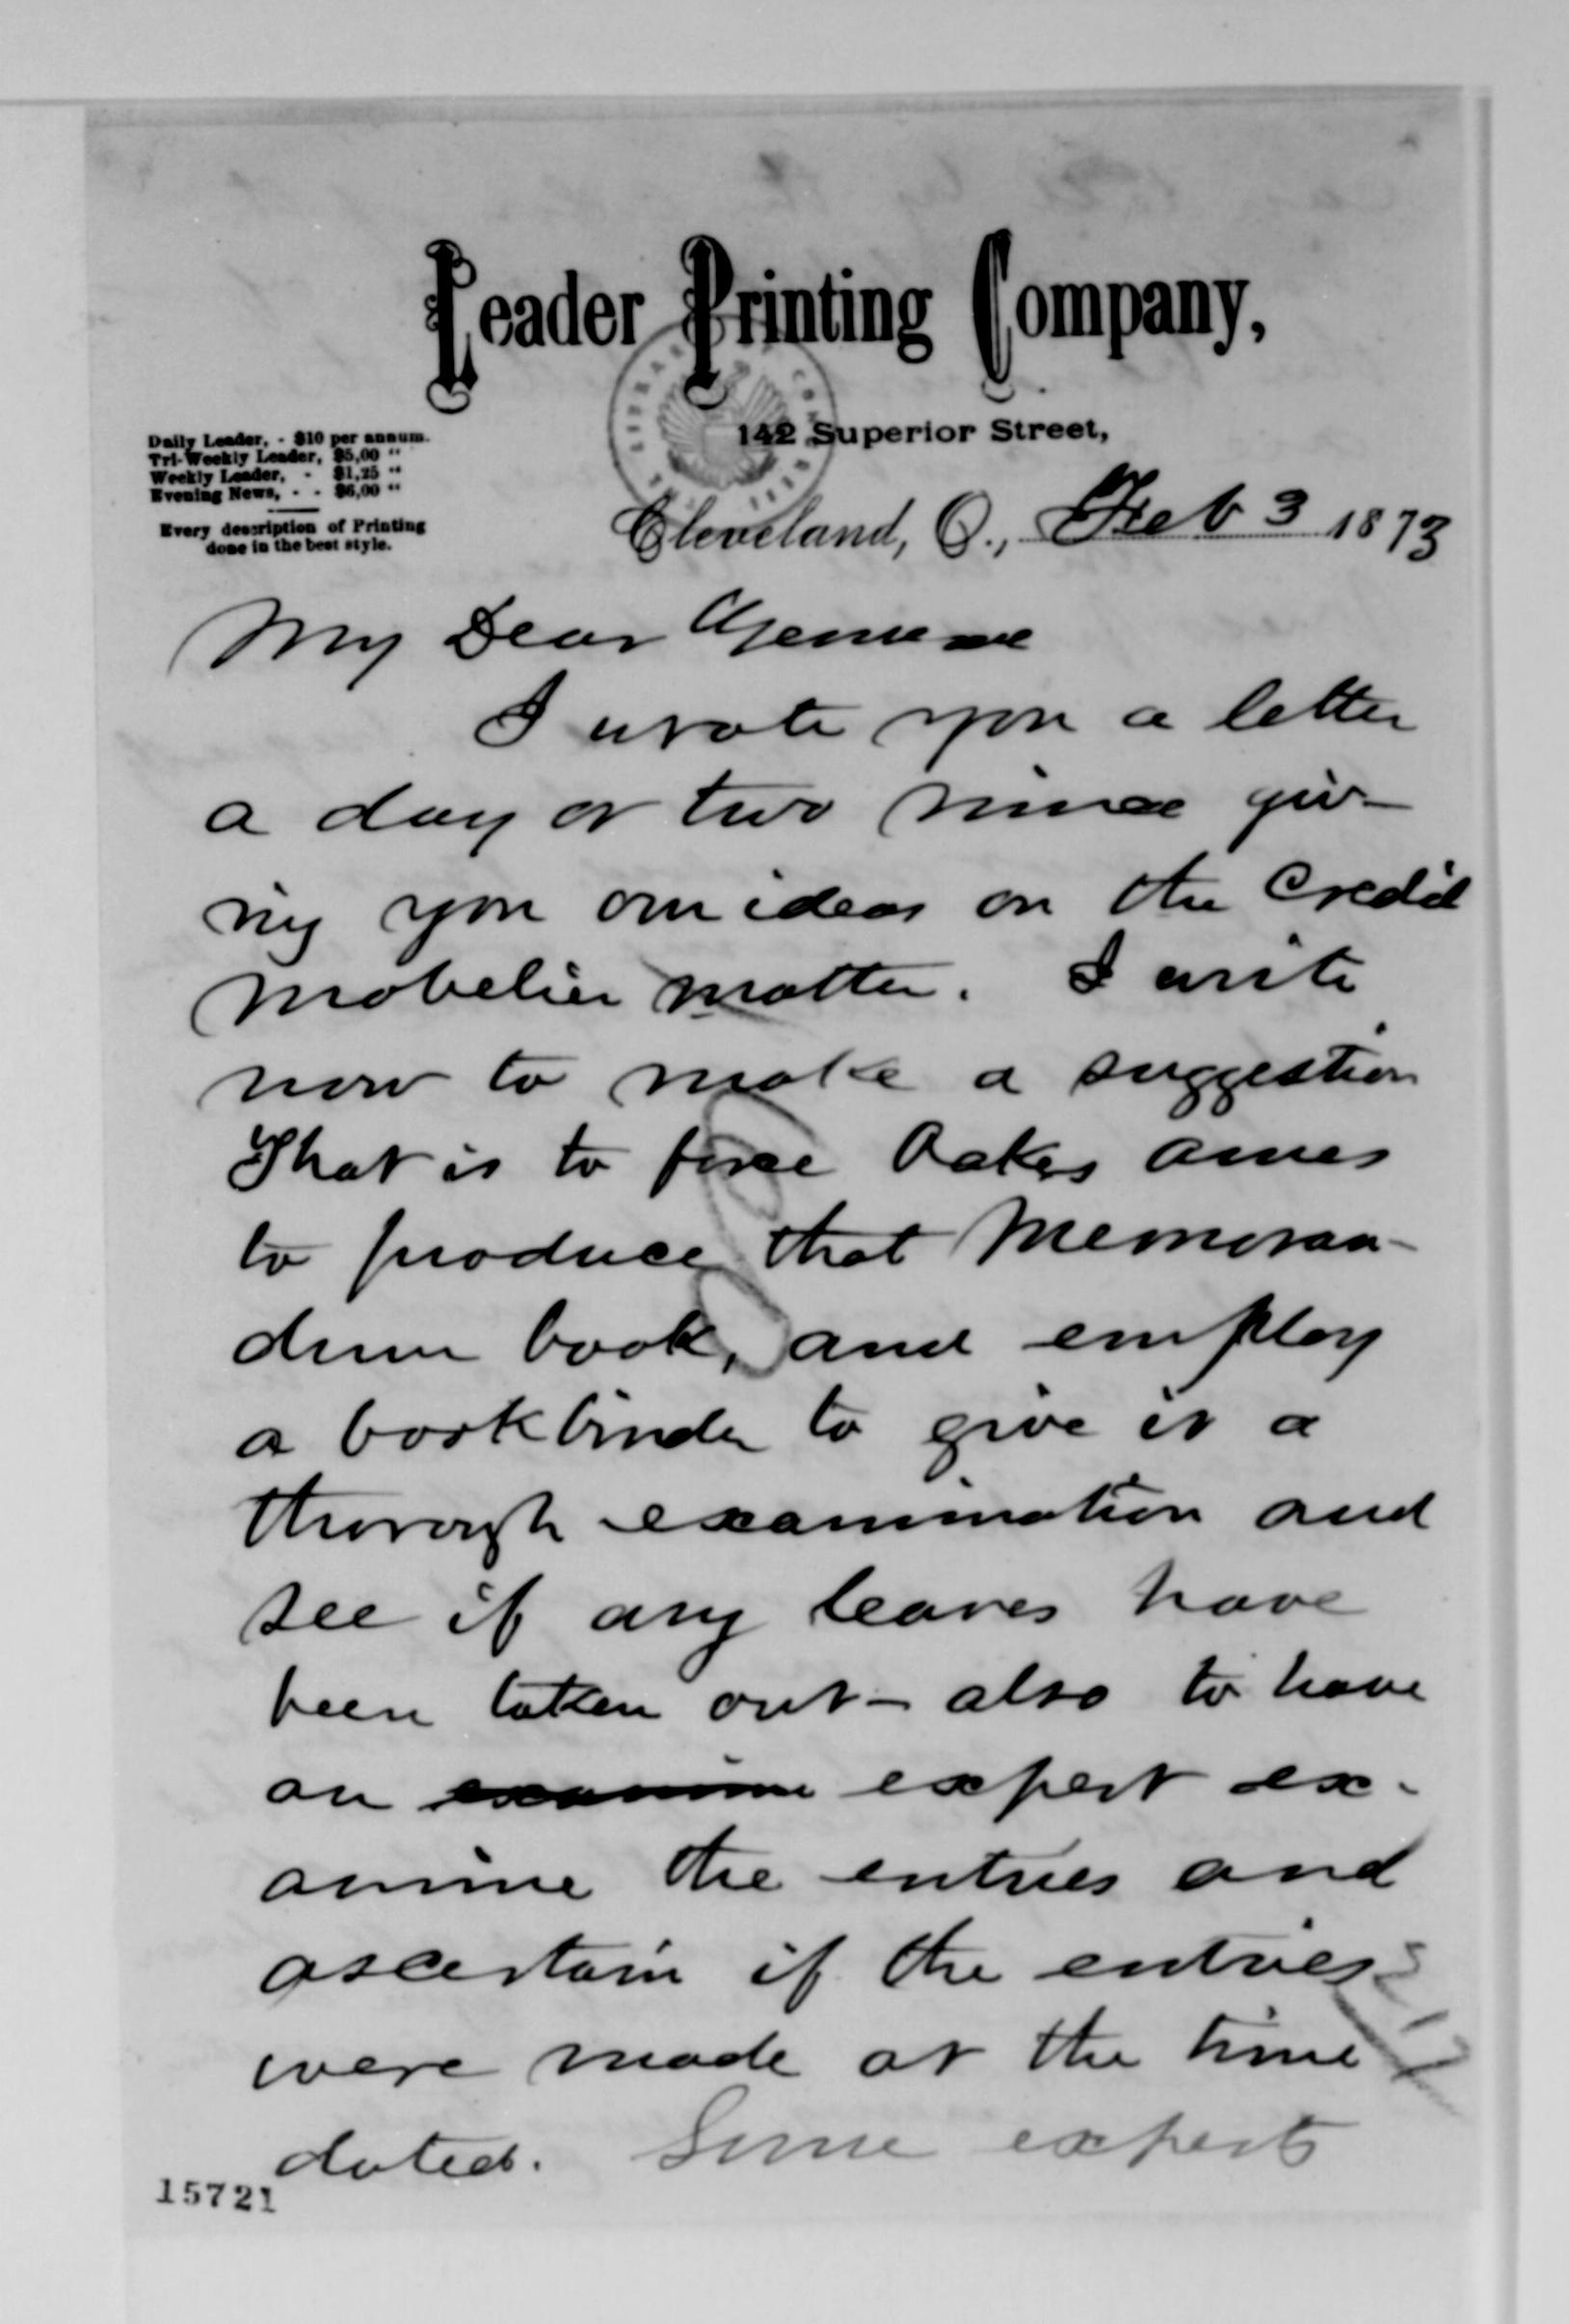 Leader Printing Company,
142 Superior Street,
Daily Leader, - $10 per annum.
Tri-Weekly Leader, $5,00 "
Weekly Leader, - $1,25 "
Evening News, - - $6,00 "
Every description of Printing
done in the best style.
Cleveland, O., Feb 3 1873
My Dear General
I wrote you a letter
a day or two since giv-
ing you our ideas on the Credit
Mobelier matter. I write
now to make a suggestion
That is to force Oakes Ames
to produce that Memoran-
dum book, and employ
a bookbinder to give it a
thorough examination and
see if any leaves have
been taken out - also to have
an examine expert ex-
amine the entries and
ascertain if the entries
were made at the time
dated. Some experts
15721